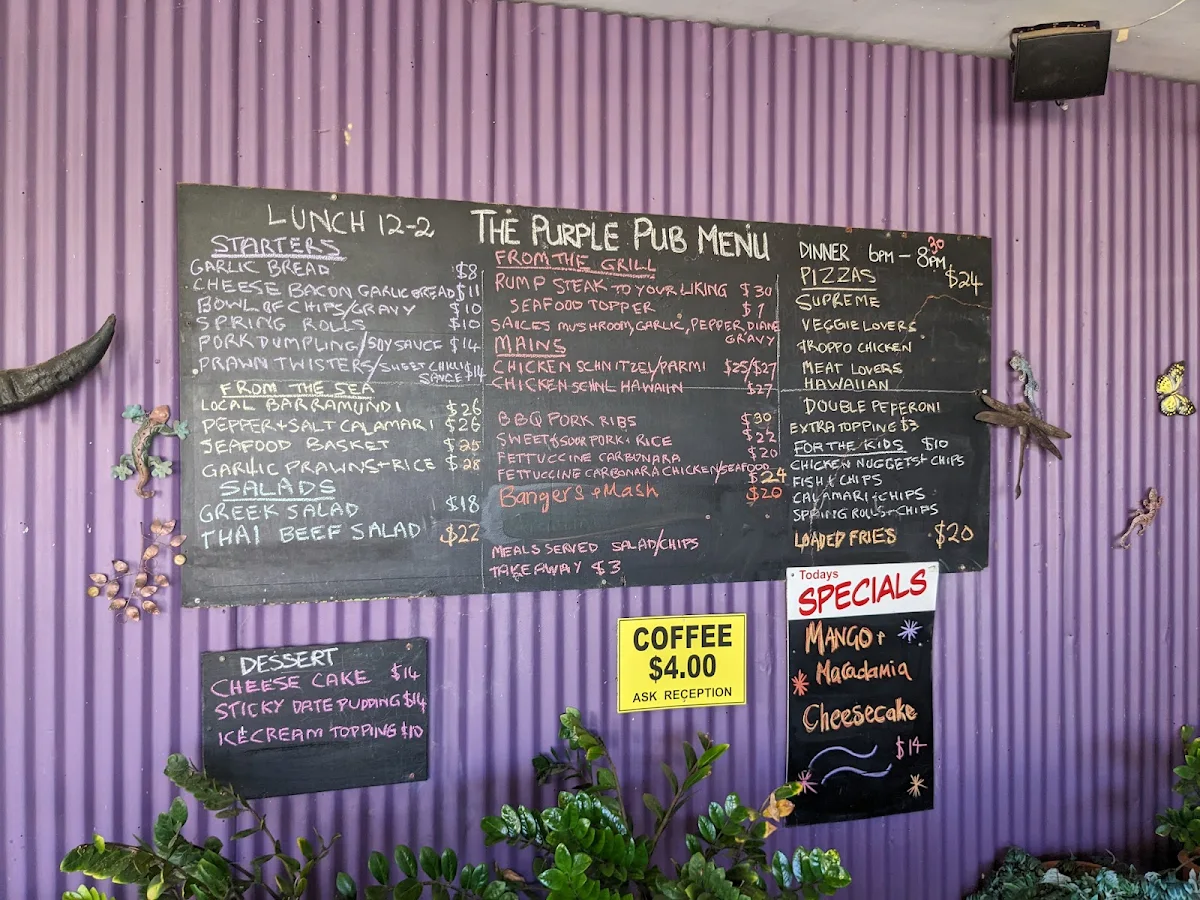 LUNCH 12-2
THE PURPLE PUB MENU
STARTERS
GARLIC BREAD $8
CHEESE BACON GARLIC BREAD $11
BOWL OF CHIPS/GRAVY $10
SPRING ROLLS $10
PORK DUMPLING/SOY SAUCE $14
PRAWN TWISTERS/SWEET CHILLI $14
SAUCE
FROM THE SEA
LOCAL BARRAMUNDI $26
PEPPER+SALT CALAMARI $26
SEAFOOD BASKET $25
GARLIC PRAWNS+RICE $28
SALADS
GREEK SALAD $18
THAI BEEF SALAD $22
FROM THE GRILL
RUMP STEAK TO YOUR LIKING $30
SEAFOOD TOPPER
SAUCES MUSHROOM, GARLIC, PEPPER, DIANE
GRAVY
MAINS
CHICKEN SCHNITZEL/PARMI $25/$27
CHICKEN SCHNL HAWAIIN $27
BBQ PORK RIBS $30
SWEET & SOUR PORK + RICE $22
FETTUCCINE CARBONARA $20
FETTUCCINE CARBONARA CHICKEN/SEAFOOD
$24
Bangers + Mash $20
MEALS SERVED SALAD/CHIPS
TAKEAWAY $3
DINNER 6PM - 8 30 PM
PIZZAS $24
SUPREME
VEGGIE LOVERS
TROPPO CHICKEN
MEAT LOVERS
HAWAIIAN
DOUBLE PEPERONI
EXTRA TOPPING $3
FOR THE KIDS $10
CHICKEN NUGGETS+CHIPS
FISH & CHIPS
CALAMARI & CHIPS
SPRING ROLLS+CHIPS
LOADED FRIES $20
DESSERT
CHEESE CAKE $14
STICKY DATE PUDDING $14
ICECREAM TOPPING $10
COFFEE
$4.00
ASK RECEPTION
Todays
SPECIALS
MANGO +
Macadamia
Cheesecake
$14